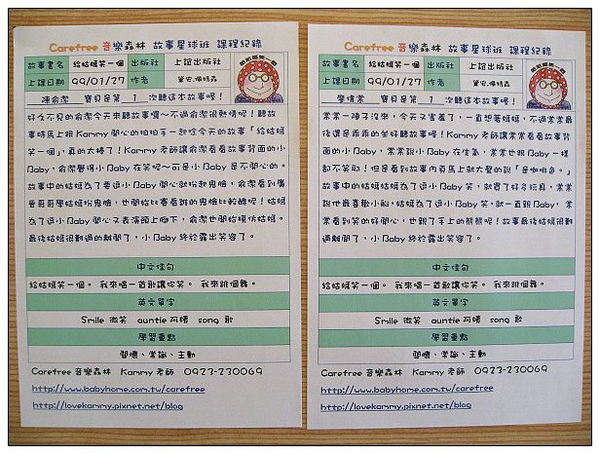 Carefree 音樂森林 故事星球班 課程紀錄
故事書名 給姑媽笑一個 出版社 上誼出版社
上課日期 99/01/27 作者 黛安.佩特森
陳俞潔 寶貝是第 1 次聽這本故事喔！
好久不見的俞潔今天來聽故事囉～不過俞潔很熱情呢！聽故
事時馬上跟Kammy開心的拍拍手一起唸今天的故事「給姑媽
笑一個」，真的太棒了！Kammy老師讓俞潔看看故事背面的小
Baby，俞潔覺得小Baby在笑呢～可是小Baby是不開心的。
故事中的姑媽為了要逗小Baby開心就扮起鬼臉，俞潔看到廣
晉哥哥學姑媽扮鬼臉，也開始比賽看誰的鬼臉比較醜呢！姑媽
為了逗小Baby開心又表演頭上腳下，俞潔也開始模仿姑媽。
最後姑媽很難過的離開了，小Baby終於露出笑容了。
中文佳句
給姑媽笑一個。 我來唱一首歌讓你笑。 我來跳個舞。
英文單字
Smile 微笑 auntie 阿姨 song 歌
學習重點
關懷、常識、主動
Carefree 音樂森林 Kammy 老師 0923-230069
http://www.babyhome.com.tw/carefree
http://lovekammy.pixnet.net/blog
Carefree 音樂森林 故事星球班 課程紀錄
故事書名 給姑媽笑一個 出版社 上誼出版社
上課日期 99/01/27 作者 黛安.佩特森
寶貝是第 1 次聽這本故事喔！
常常一陣子沒來，今天又害羞了，一直想著媽媽，不過常常最
後還是乖乖的坐好聽故事喔！Kammy老師讓常常看看故事背
面的小Baby，常常說小Baby在生氣，常常也跟Baby一樣
都不笑啦！但是看到故事內頁馬上就大聲的說「是咖啡色。」
故事中的姑媽姑媽為了逗小Baby笑，就買了好多玩具，常常
說他最喜歡小船；姑媽為了逗小Baby笑，就一直親Baby，常
常看到笑的好開心，也親了手上的熊熊呢！故事最後姑媽很難
過離開了，小Baby終於露出笑容了。
中文佳句
給姑媽笑一個。 我來唱一首歌讓你笑。 我來跳個舞。
英文單字
Smile 微笑 auntie 阿姨 song 歌
學習重點
關懷、常識、主動
Carefree 音樂森林 Kammy 老師 0923-230069
http://www.babyhome.com.tw/carefree
http://lovekammy.pixnet.net/blog